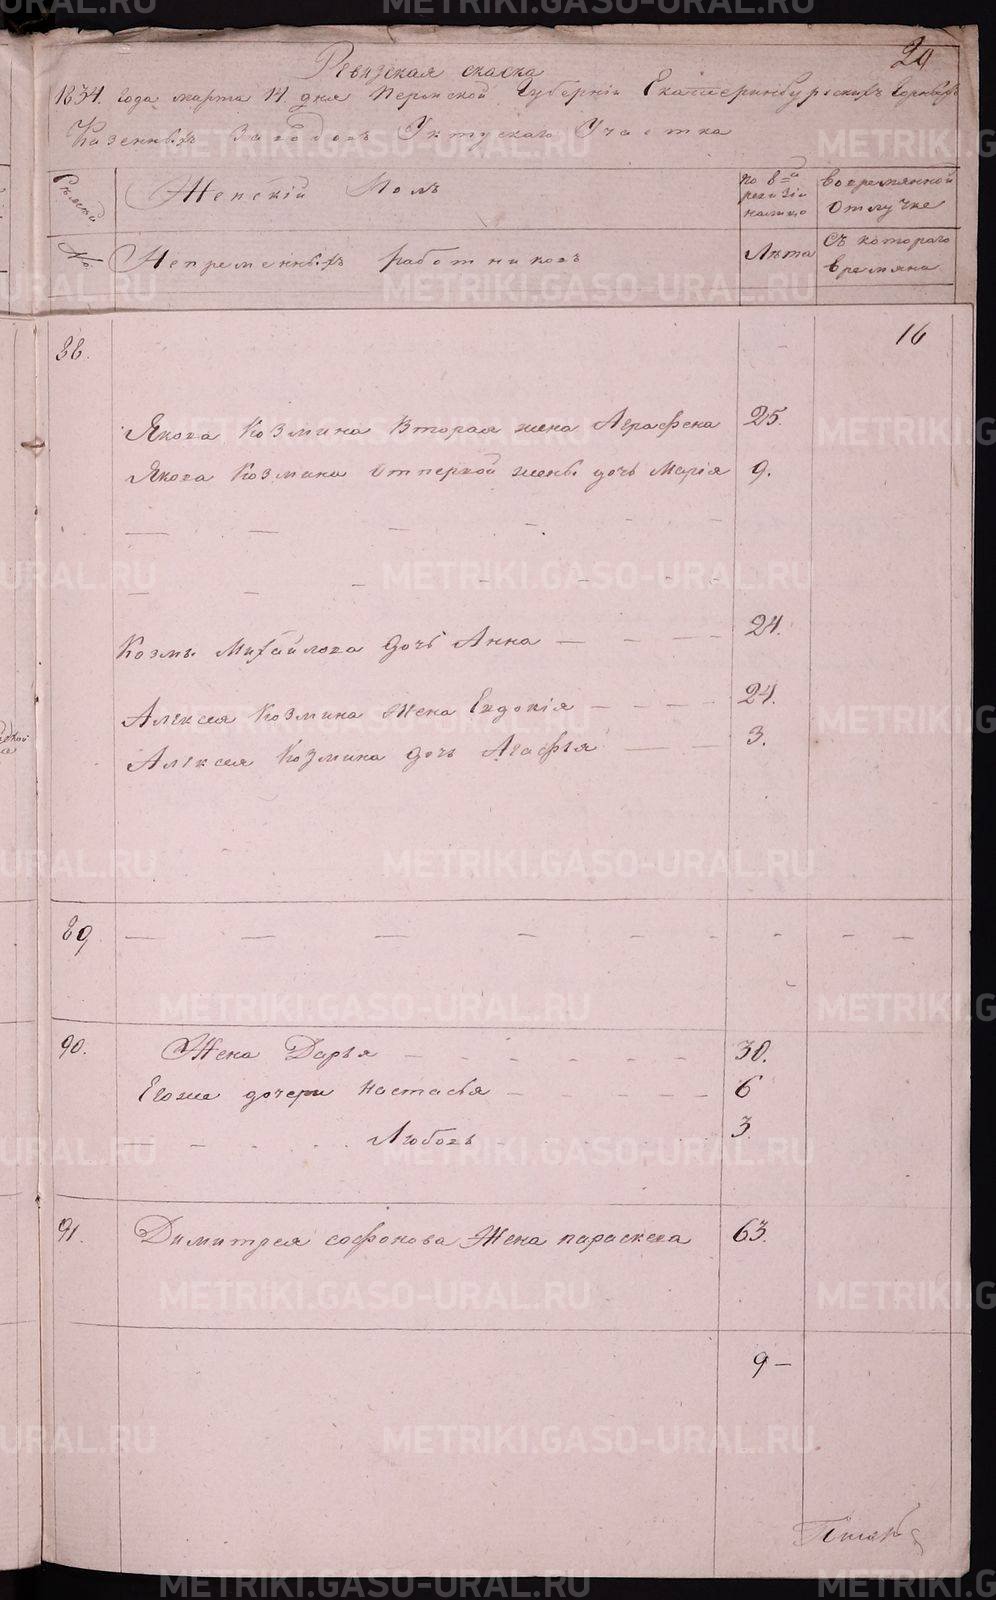 20
Ревизская скаска
1834. года марта 14 дня Пермской Губернии Екатеринбургскихъ Горныхъ
Казенныхъ Заводовъ Уктускаго Участка
Женскій Полъ
По 8й ревизіи налицо
Во временной отлучке
№
Непременныхъ работниковъ
Лѣта
Съ котораго времяни
16
88.
Якова Козмина Вторая жена Аграфена 25.
Якова Козмина От первой жены дочь Марія 9.
Козмы Михайлова дочь Анна 24.
Алексея Козмина Жена Евдокія 24.
Алексея Козмина дочь Агафья 3.
89
90. Жена Дарья 30.
Егоже дочери Настасья 6
Любовь 3.
91. Димитрея Софонова Жена параскева 63.
9
METRIKI.GASO-URAL.RU